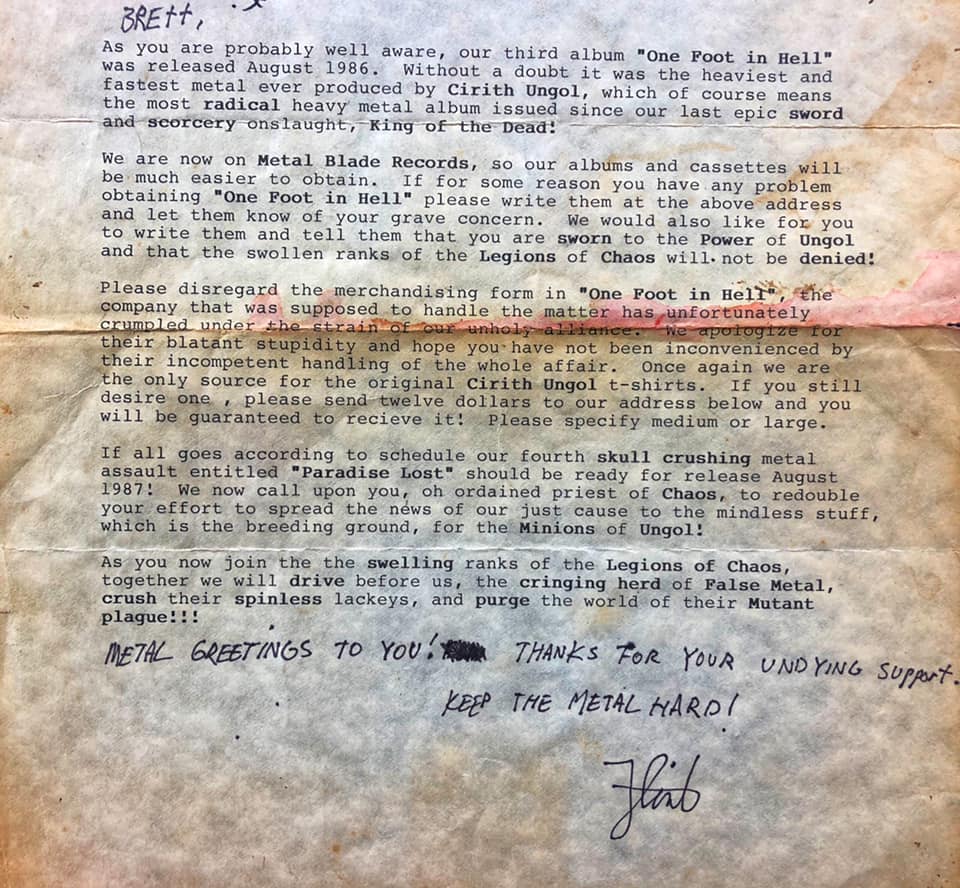 BREtt,
As you are probably well aware, our third album "One Foot in Hell"
was released August 1986. Without a doubt it was the heaviest and
fastest metal ever produced by Cirith Ungol, which of course means
the most radical heavy metal album issued since our last epic sword
and scorcery onslaught, King of the Dead!
We are now on Metal Blade Records, so our albums and cassettes will
be much easier to obtain. If for some reason you have any problem
obtaining "One Foot in Hell" please write them at the above address
and let them know of your grave concern. We would also like for you
to write them and tell them that you are sworn to the Power of Ungol
and that the swollen ranks of the Legions of Chaos will not be denied!
Please disregard the merchandising form in "One Foot in Hell", the
company that was supposed to handle the matter has unfortunately
crumpled under the strain of our unholy alliance. We apologize for
their blatant stupidity and hope you have not been inconvenienced by
their incompetent handling of the whole affair. Once again we are
the only source for the original Cirith Ungol t-shirts. If you still
desire one , please send twelve dollars to our address below and you
will be guaranteed to recieve it! Please specify medium or large.
If all goes according to schedule our fourth skull crushing metal
assault entitled "Paradise Lost" should be ready for release August
1987! We now call upon you, oh ordained priest of Chaos, to redouble
your effort to spread the news of our just cause to the mindless stuff,
which is the breeding ground, for the Minions of Ungol!
As you now join the the swelling ranks of the Legions of Chaos,
together we will drive before us, the cringing herd of False Metal,
crush their spinless lackeys, and purge the world of their Mutant
plague!!!
METAL GREETINGS TO YOU! THANKS FOR YOUR UNDYING SUPPORT.
KEEP THE METAL HARD!
Flint